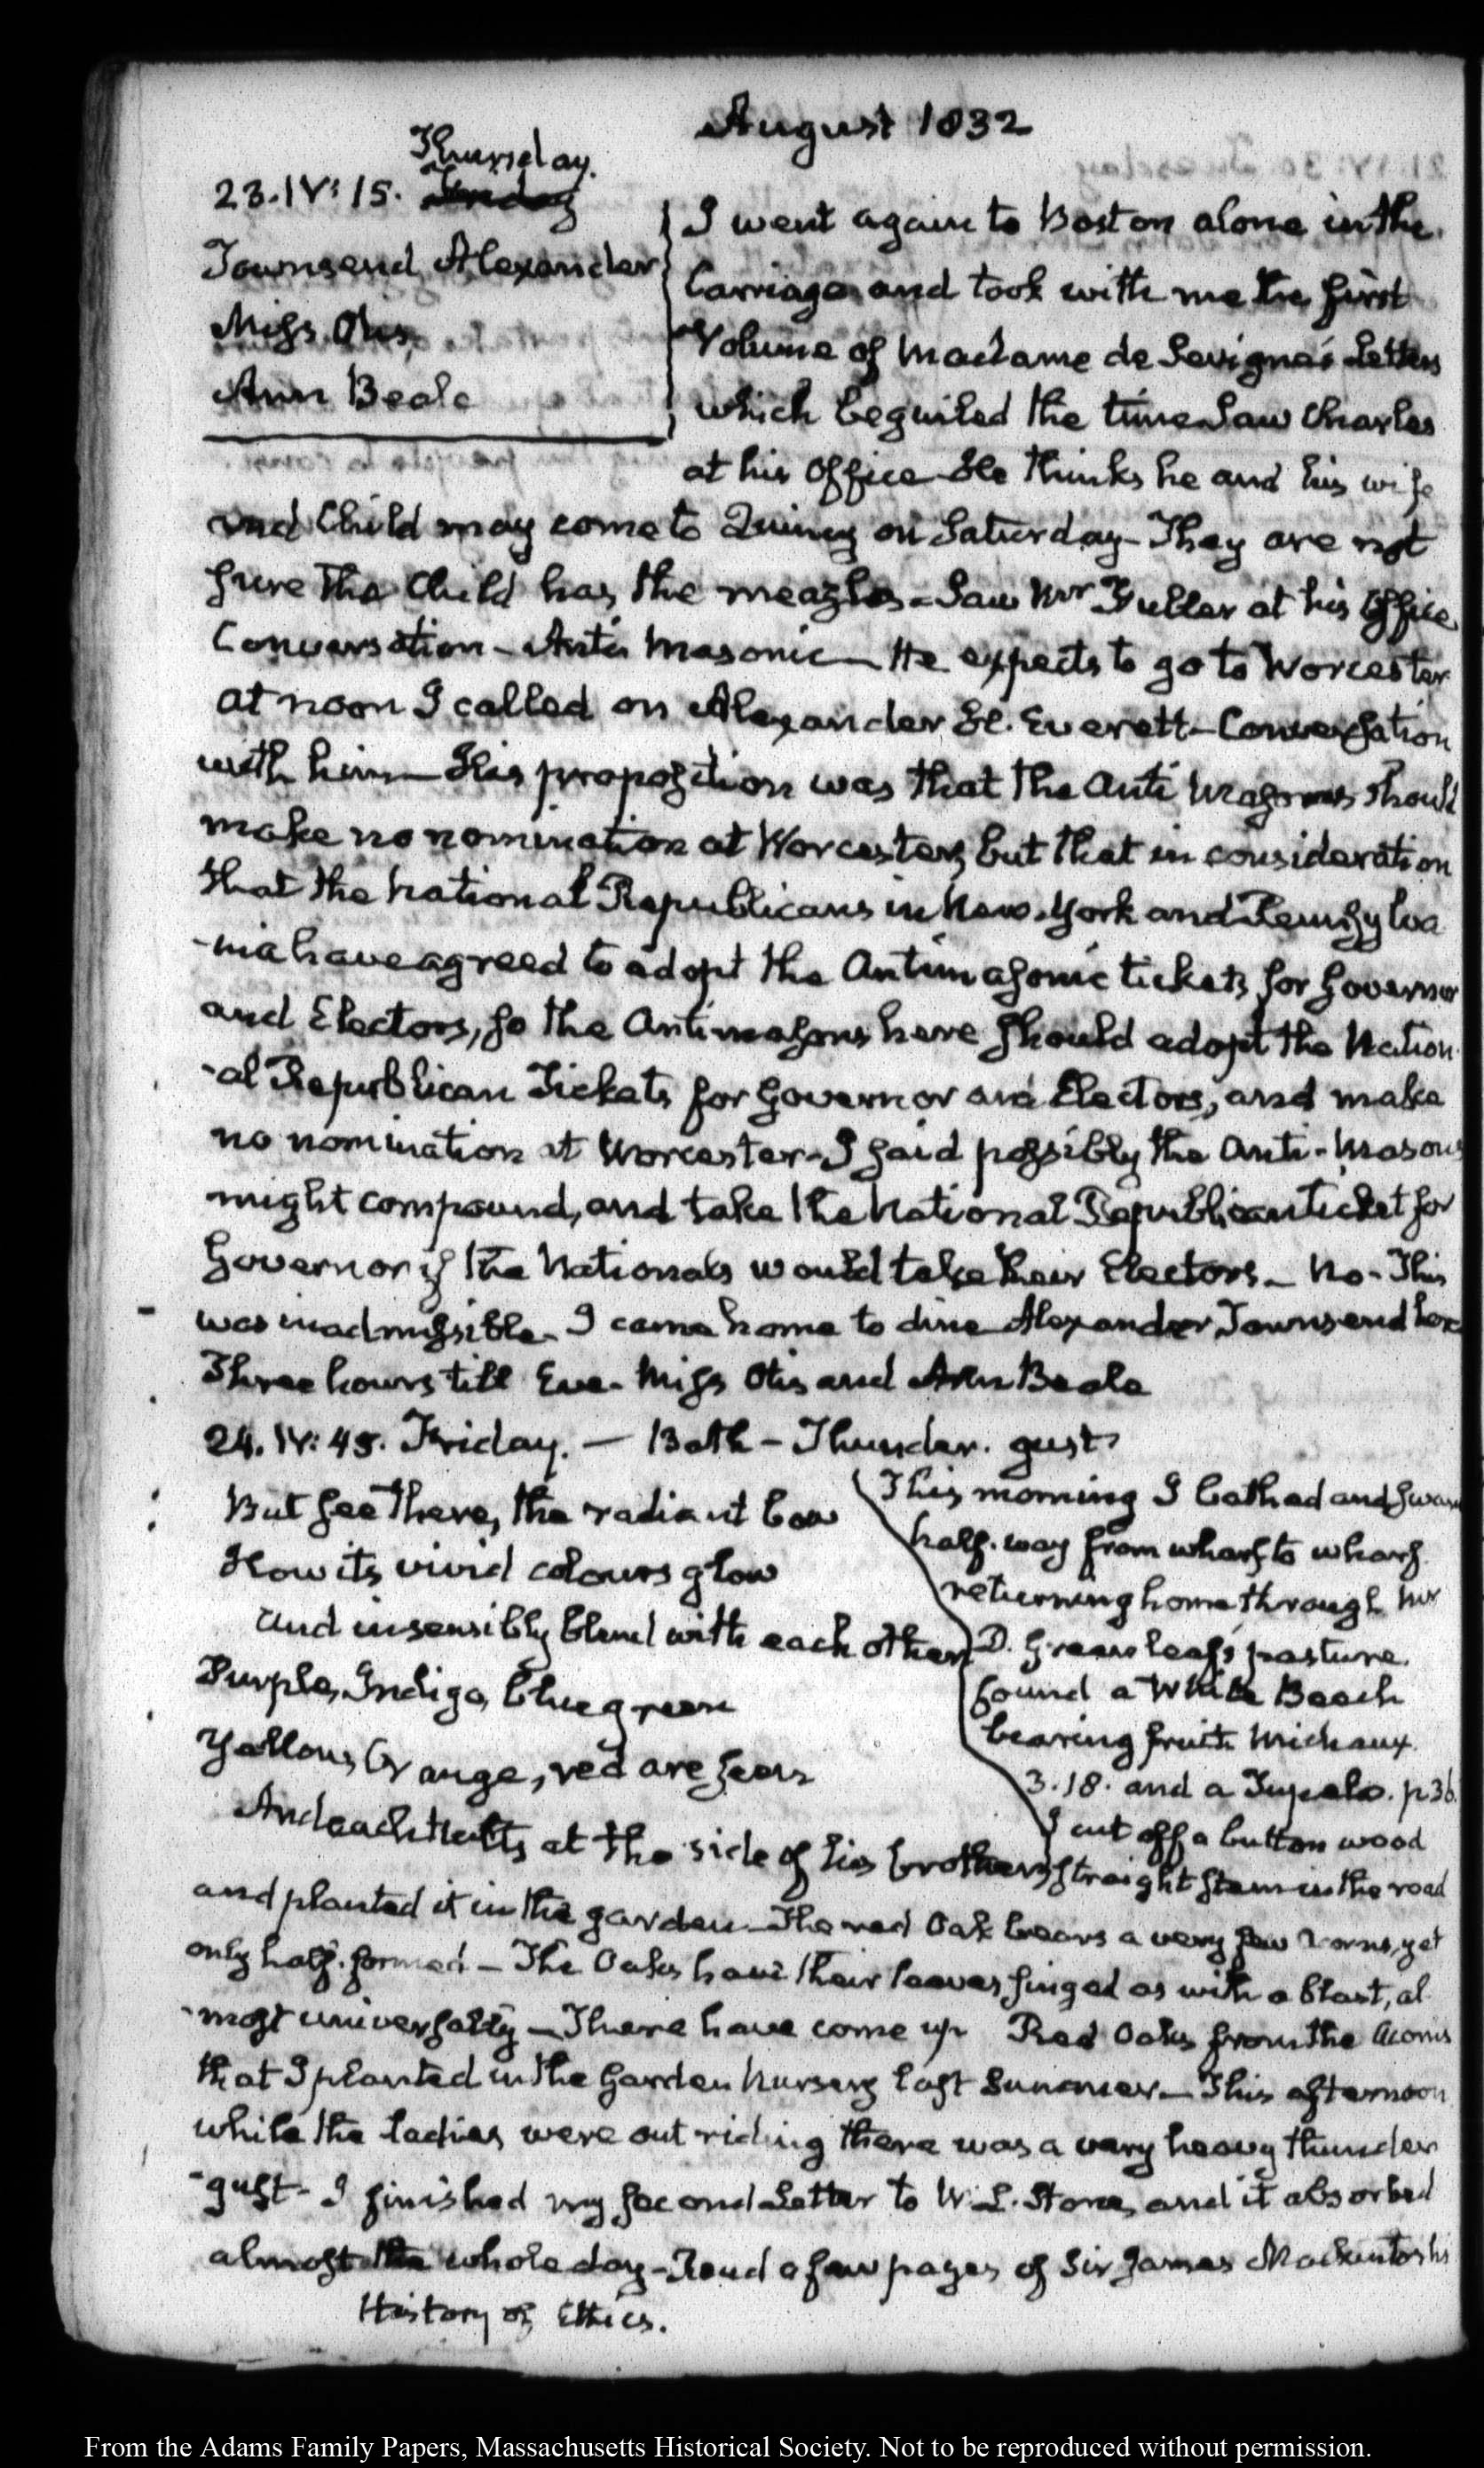 August 1832
Thursday.
23. IV: 15. Friday
Townsend Alexander
Miss Otis
Ann Beale
I went again to Boston alone in the
Carriage and took with me the first
Volume of Madame de Sevigné's Letters
which beguiled the time Saw Charles
at his Office He thinks he and his wife
and Child may come to Quincy on Saturday - They are not
sure the Child has the meazles - Saw Mr Fuller at his Office
Conversation - Anti Masonic - He expects to go to Worcester
at noon I called on Alexander H. Everett - Conversation
with him - His proposition was that the Anti Masons should
make no nomination at Worcester, but that in consideration
that the National Republicans in New-York and Pennsylva
-nia have agreed to adopt the Antimasonic tickets for Governor
and Electors, so the Antimasons here should adopt the Nation
-al Republican Tickets for Governor and Electors, and make
no nomination at Worcester - I said possibly the Anti-Masons
might compound, and take the National Republican ticket for
Governor if the Nationals would take their Electors - No - This
was inadmissible - I came home to dine Alexander Townsend here
Three hours till Eve - Miss Otis and Ann Beale
24. IV: 45. Friday. - Bath - Thunder. gust
But see there, the radiant bow
How its vivid colours glow
and insensibly blend with each other
Purple, Indigo, blue green
Yellow, Orange, red are seen
And each melts at the side of his brother
This morning I bathed and swam
half-way from wharf to wharf
returning home through Mr
D. Greenleaf's pasture
found a White Beech
bearing fruit Michaux
3. 18. and a Tupelo. p 36.
I cut off a button wood
straight stem in the road
and planted it in the garden - The red Oak bears a very few acorns, yet
only half-formed - The Oaks have their leaves singed as with a blast, al
-most universally - There have come up Red Oaks from the Acorns
that I planted in the Garden Nursery last Summer - This afternoon
while the ladies were out riding there was a very heavy thunder
-gust - I finished my second Letter to W. L. Stone, and it absorbed
almost the whole day - Read a few pages of Sir James Mackintosh's
History of Ethics.
From the Adams Family Papers, Massachusetts Historical Society. Not to be reproduced without permission.